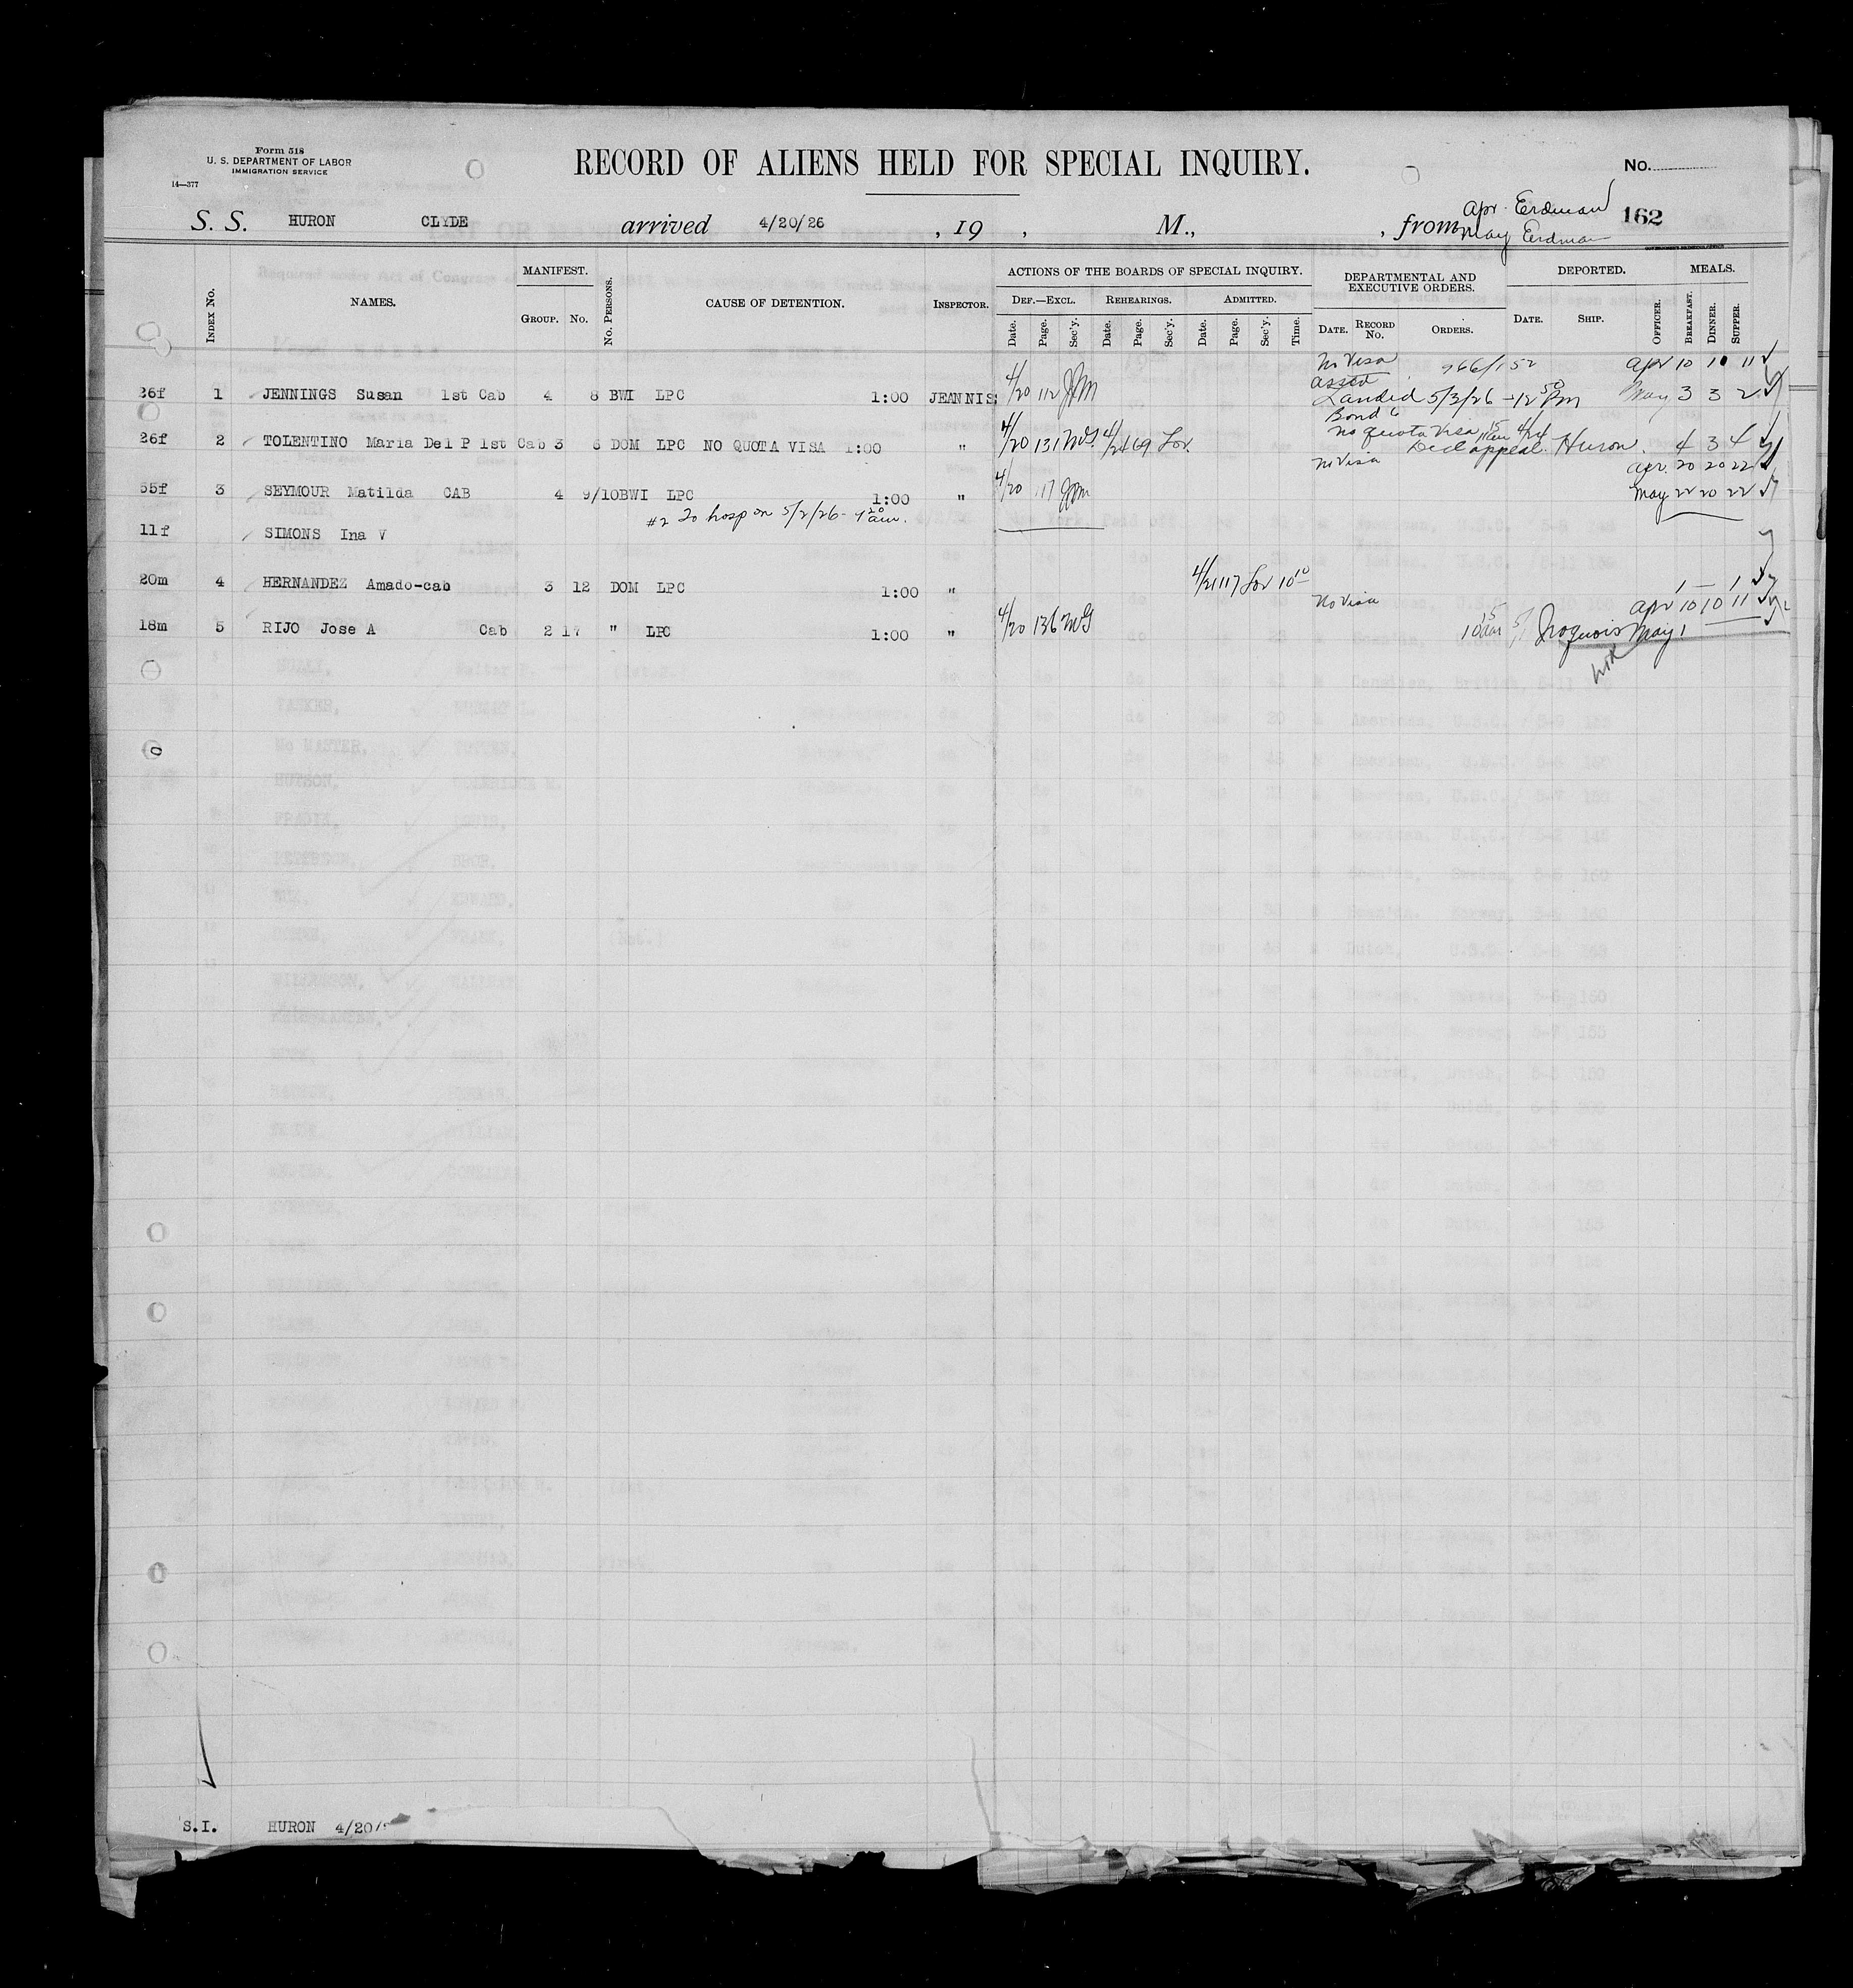 Form 518
U. S. DEPARTMENT OF LABOR
IMMIGRATION SERVICE
14—377
RECORD OF ALIENS HELD FOR SPECIAL INQUIRY.
No.
S. S. HURON CLYDE arrived 4/20/26 , 19 , M., , from Apr. Erdman
May Erdman
162
INDEX No. NAMES. MANIFEST. GROUP. No. No. PERSONS. CAUSE OF DETENTION. INSPECTOR. ACTIONS OF THE BOARDS OF SPECIAL INQUIRY. DEF.—EXCL. REHEARINGS. ADMITTED. Date. Page. Sec'y. Date. Page. Sec'y. Date. Page. Sec'y. Time. DEPARTMENTAL AND EXECUTIVE ORDERS. DATE. RECORD No. ORDERS. DEPORTED. DATE. SHIP. OFFICER. MEALS. BREAKFAST. DINNER. SUPPER.
No Visa Apr 10 10 11
26f 1 JENNINGS Susan 1st Cab 4 8 BWI LPC 1:00 JEANNIS 4/20 112 JPM Landed 5/3/26 - 12 50 Pm May 3 3 2
Bond
No quota Visa
26f 2 TOLENTINO Maria Del P 1st Cab 3 6 DOM LPC NO QUOTA VISA 1:00 " 4/20 131 4/24 69 Decl appeal. 4/24 Huron. 4 3 4
No Visa Apr. 20 20 22
55f 3 SEYMOUR Matilda CAB 4 9/10 BWI LPC 1:00 " 4/20 117 JPM May 22 20 22
#2 To hosp on 5/2/26 - am.
11f SIMONS Ina V
20m 4 HERNANDEZ Amado-cab 3 12 DOM LPC 1:00 " 4/21 117 10 10 1 — 1
No Visa Apr 10 10 11
18m 5 RIJO Jose A Cab 2 17 " LPC 1:00 " 4/20 136 10 15 am 5/1 Iroquois May 1
S.I. HURON 4/20/